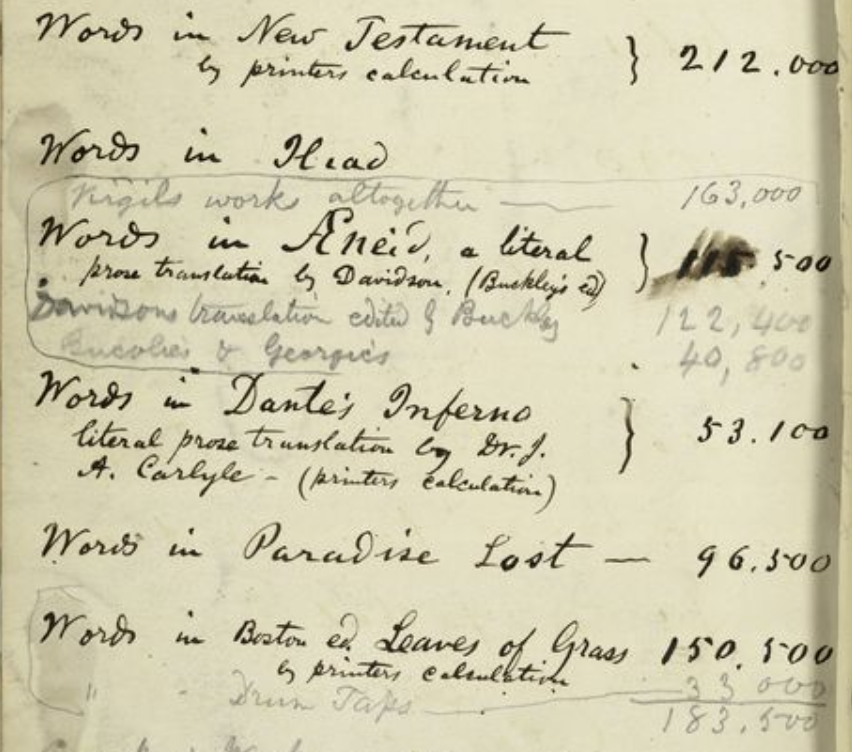 Words in New Testament
by printers calculation } 212.000
Words in Iliad
Virgils works altogether — 163,000
Words in Æneid, a literal
prose translation by Davidson, (Buckley's ed) } 115.500
Davidsons translation edited by Buckley 122,400
Bucolics & Georgics 40,800
Words in Dante's Inferno
literal prose translation by Dr. J. } 53.100
A. Carlyle – (printers calculation)
Words in Paradise Lost — 96.500
Words in Boston ed. Leaves of Grass 150.500
by printers calculation
" " Drum Taps — 33 000
183,500